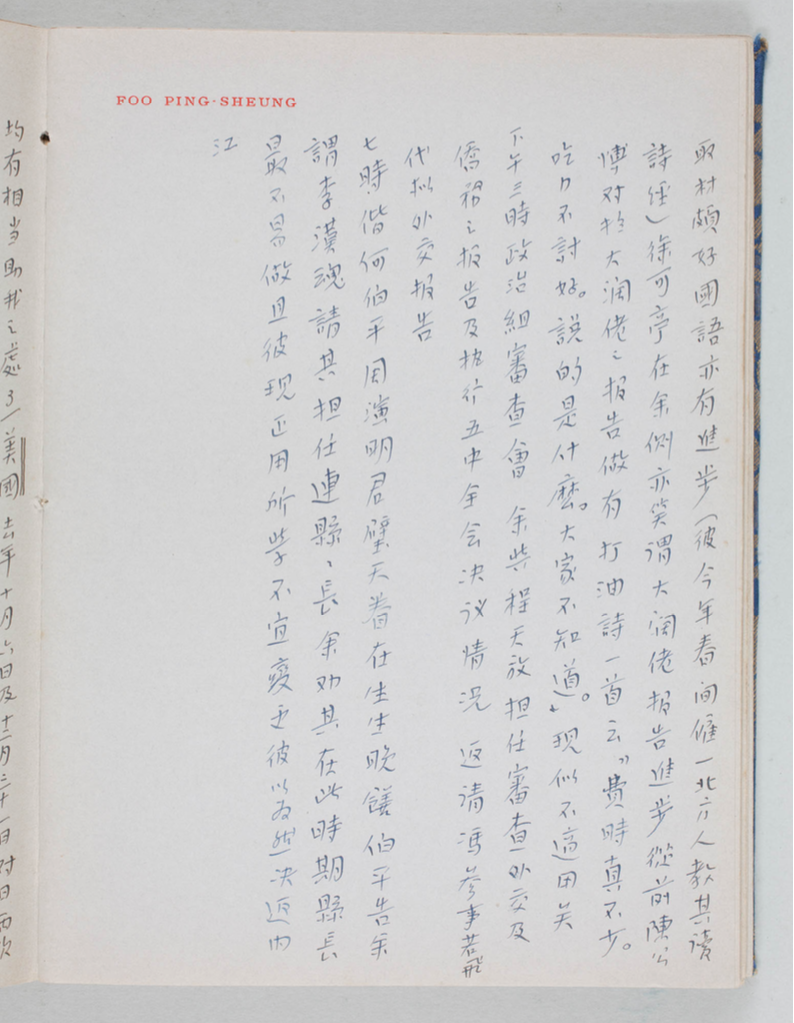 FOO PING-SHEUNG
取材頗好國語亦有進步（彼今年春间僱一北方人教其讀
詩經）徐可亭在余側亦笑謂大阔佬报告進步從前陳公
博对於大阔佬之报告做有打油詩一首云"費時真不少。
吃力不討好。説的是什麽。大家不知道。"現似不適用矣
下午三時政治組審查會 余與程天放担任審查外交及
僑務之报告及执行五中全会决议情况 返請馮參事若飛
代拟外交报告
七時偕何伯平周演明君璧天眷在生生晚饍伯平告余
謂李漢魂請其担任連縣、長余劝其在此時期縣長
最不易做且彼現正用所學不宜变更彼以為然决返内
江
均有相当助我之處了一美國去年十月六日及十二月三十一日对日两次